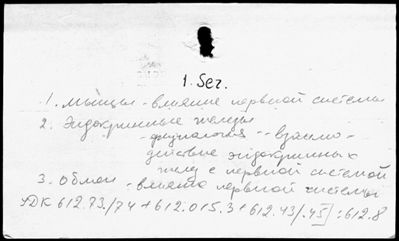 1. Sez.
1. Мышцы - влияние нервной системы
2. Эндокринные железы
- физиология -- взаимо-
действие эндокринных
желез с нервной системой
3. Обмен - влияние нервной системы
УДК 612.73./74 + 612.015.3 + 612.43/.45] : 612.8